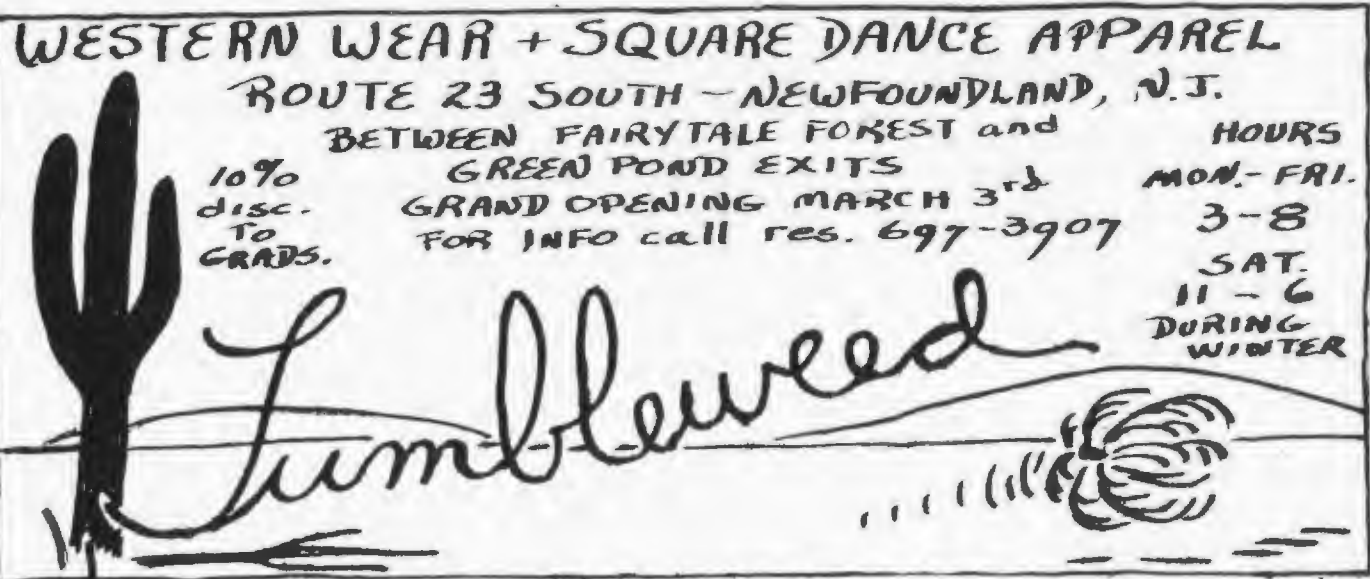 WESTERN WEAR + SQUARE DANCE APPAREL
ROUTE 23 SOUTH - NEWFOUNDLAND, N.J.
BETWEEN FAIRYTALE FOREST and
GREEN POND EXITS
GRAND OPENING MARCH 3rd
FOR INFO call res. 697-3907
10%
disc.
TO
GRADS.
HOURS
MON.-FRI.
3-8
SAT.
11-6
DURING
WINTER
Tumbleweed